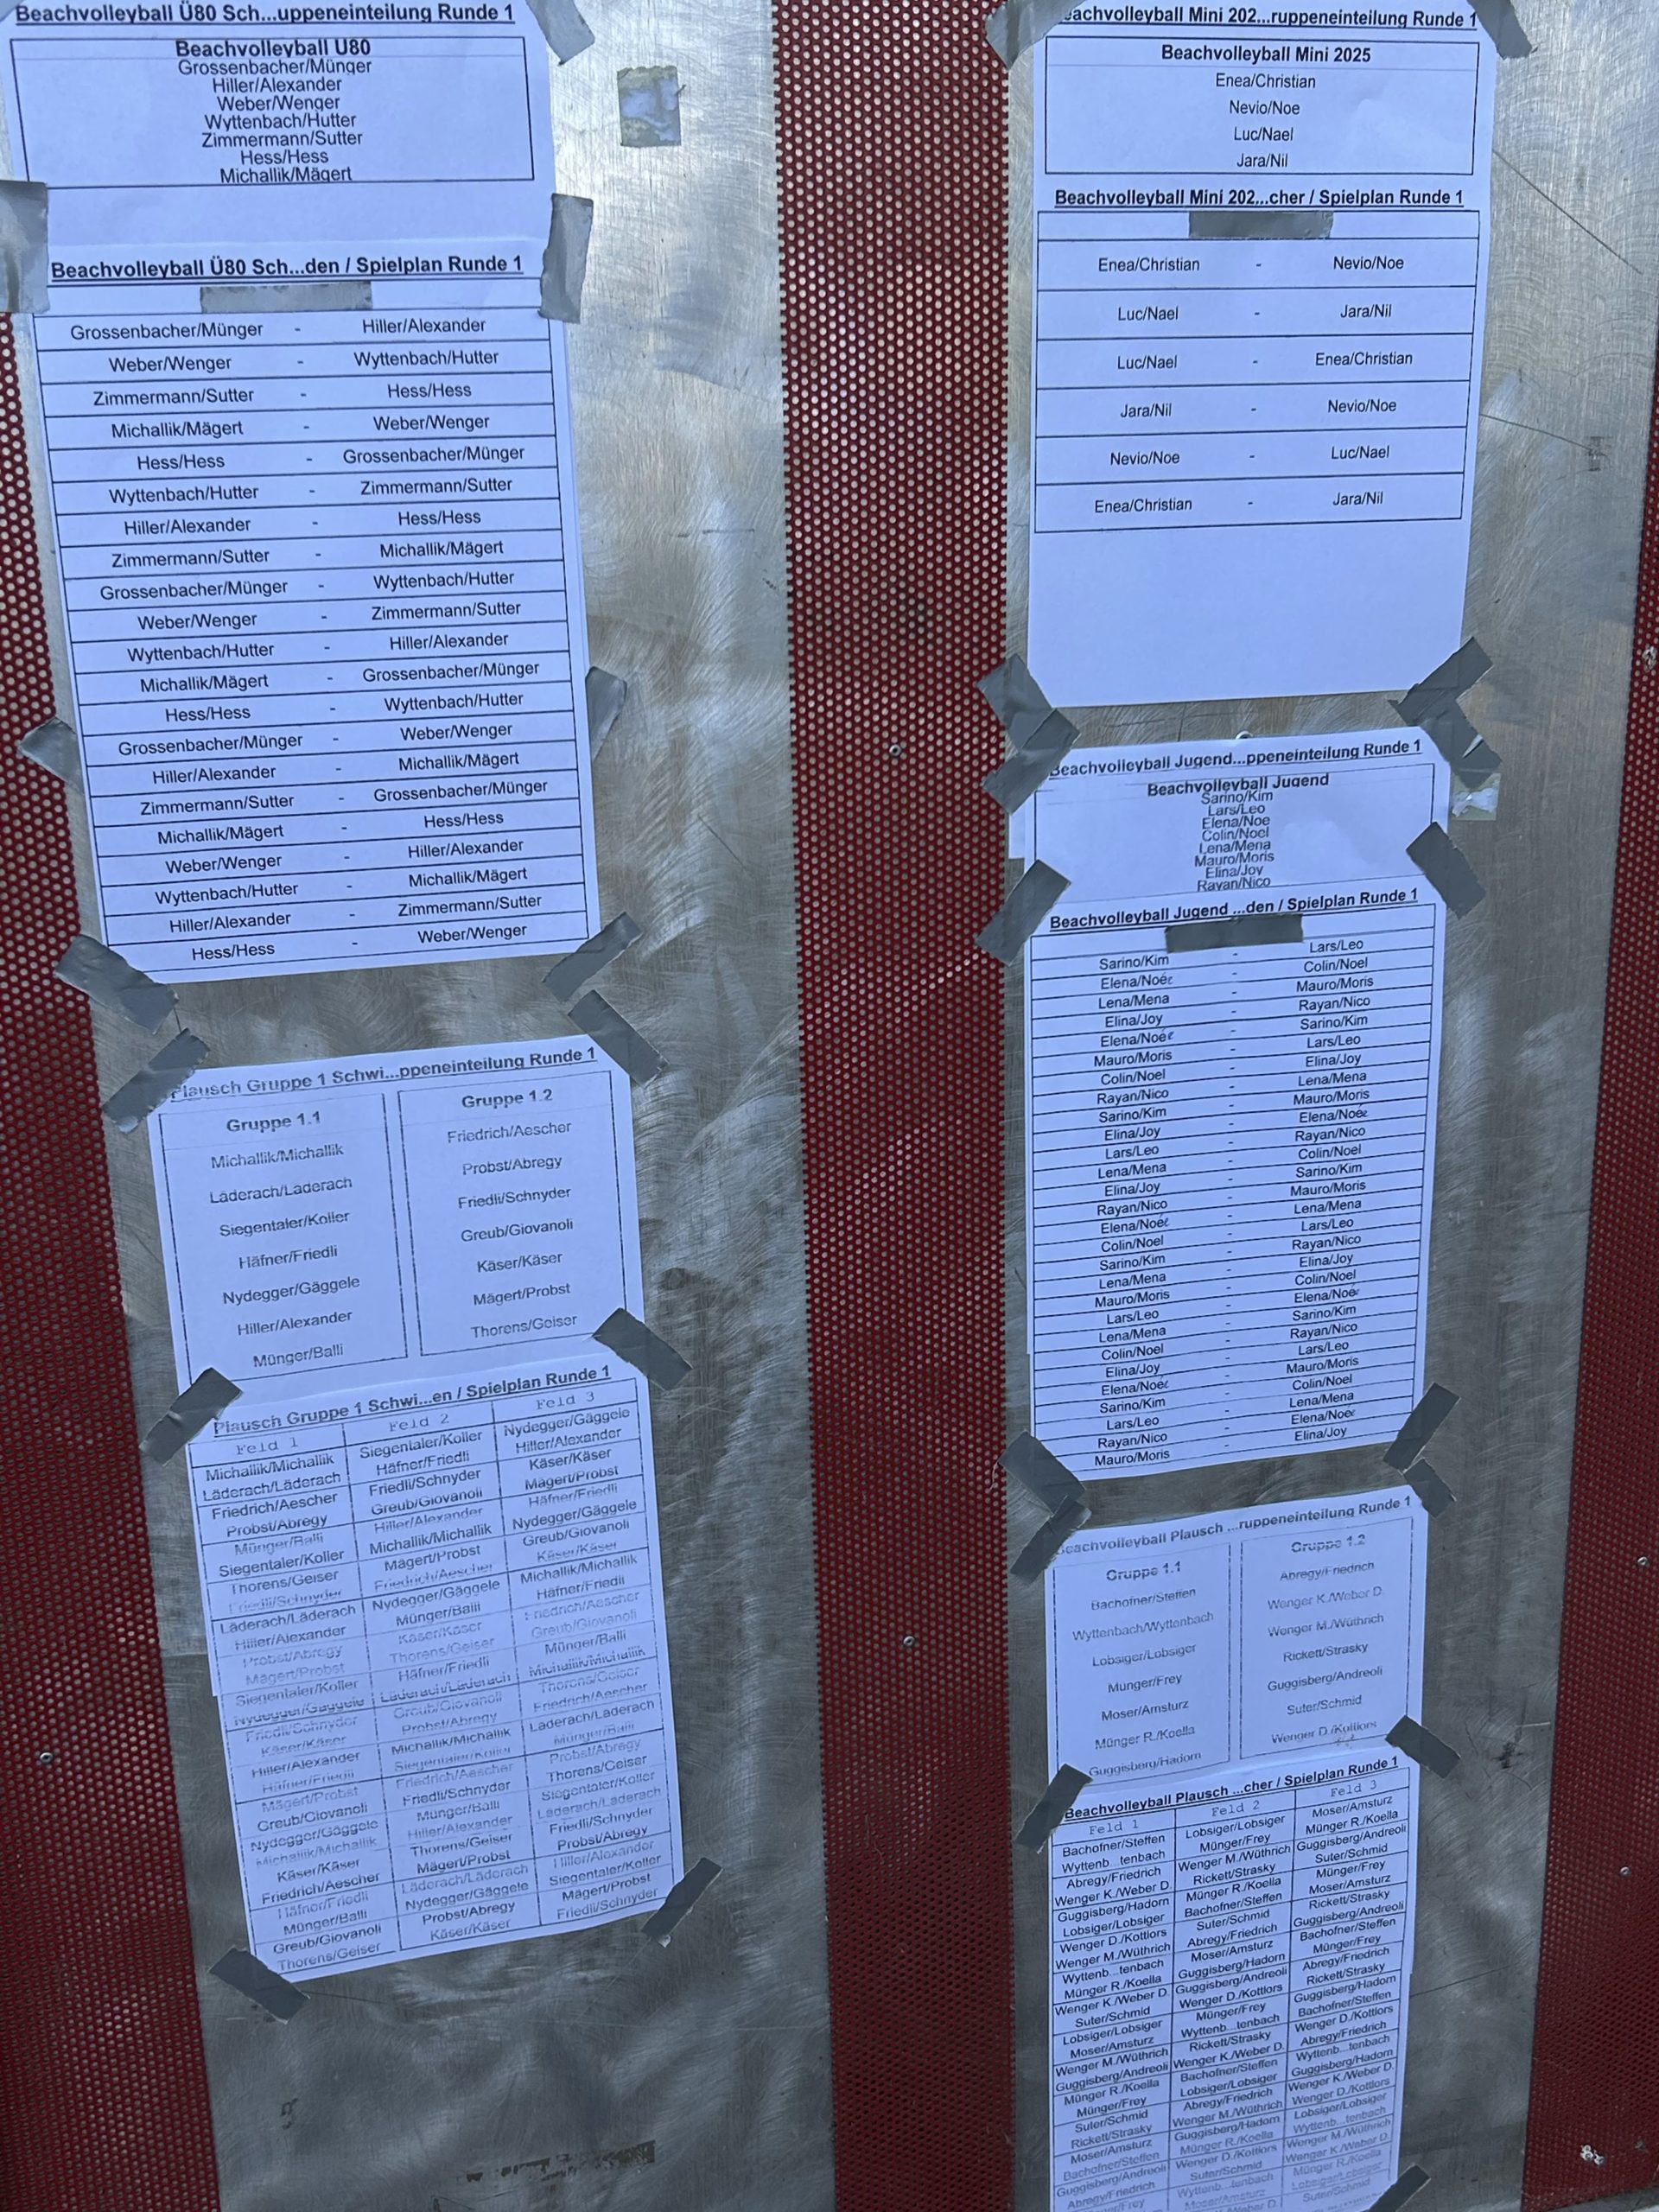 Beachvolleyball Ü80 Sch...uppeneinteilung Runde 1
Beachvolleyball U80
Grossenbacher/Münger
Hiller/Alexander
Weber/Wenger
Wyttenbach/Hutter
Zimmermann/Sutter
Hess/Hess
Michallik/Mägert
Beachvolleyball Ü80 Sch...den / Spielplan Runde 1
Grossenbacher/Münger - Hiller/Alexander
Weber/Wenger - Wyttenbach/Hutter
Zimmermann/Sutter - Hess/Hess
Michallik/Mägert - Weber/Wenger
Hess/Hess - Grossenbacher/Münger
Wyttenbach/Hutter - Zimmermann/Sutter
Hiller/Alexander - Hess/Hess
Zimmermann/Sutter - Michallik/Mägert
Grossenbacher/Münger - Wyttenbach/Hutter
Weber/Wenger - Zimmermann/Sutter
Wyttenbach/Hutter - Hiller/Alexander
Michallik/Mägert - Grossenbacher/Münger
Hess/Hess - Wyttenbach/Hutter
Grossenbacher/Münger - Weber/Wenger
Hiller/Alexander - Michallik/Mägert
Zimmermann/Sutter - Grossenbacher/Münger
Michallik/Mägert - Hess/Hess
Weber/Wenger - Hiller/Alexander
Wyttenbach/Hutter - Michallik/Mägert
Hiller/Alexander - Zimmermann/Sutter
Hess/Hess - Weber/Wenger
Plausch Gruppe 1 Schwi...ppeneinteilung Runde 1
Gruppe 1.1 Gruppe 1.2
Michallik/Michallik Friedrich/Aescher
Läderach/Läderach Probst/Abregy
Siegentaler/Koller Friedli/Schnyder
Häfner/Friedli Greub/Giovanoli
Nydegger/Gäggele Käser/Käser
Hiller/Alexander Mägert/Probst
Münger/Balli Thorens/Geiser
Plausch Gruppe 1 Schwi...en / Spielplan Runde 1
Feld 1 Feld 2 Feld 3
Michallik/Michallik Siegentaler/Koller Nydegger/Gäggele
Läderach/Läderach Häfner/Friedli Hiller/Alexander
Friedrich/Aescher Friedli/Schnyder Käser/Käser
Probst/Abregy Greub/Giovanoli Mägert/Probst
Münger/Balli Hiller/Alexander Häfner/Friedli
Siegentaler/Koller Michallik/Michallik Nydegger/Gäggele
Thorens/Geiser Mägert/Probst Greub/Giovanoli
Friedli/Schnyder Friedrich/Aescher Käser/Käser
Läderach/Läderach Nydegger/Gäggele Michallik/Michallik
Hiller/Alexander Münger/Balli Häfner/Friedli
Probst/Abregy Käser/Käser Friedrich/Aescher
Mägert/Probst Thorens/Geiser Greub/Giovanoli
Siegentaler/Koller Häfner/Friedli Münger/Balli
Nydegger/Gäggele Läderach/Läderach Michallik/Michallik
Friedli/Schnyder Greub/Giovanoli Thorens/Geiser
Käser/Käser Probst/Abregy Friedrich/Aescher
Hiller/Alexander Michallik/Michallik Läderach/Läderach
Häfner/Friedli Siegentaler/Koller Münger/Balli
Mägert/Probst Friedrich/Aescher Probst/Abregy
Greub/Giovanoli Friedli/Schnyder Thorens/Geiser
Nydegger/Gäggele Münger/Balli Siegentaler/Koller
Michallik/Michallik Hiller/Alexander Läderach/Läderach
Käser/Käser Thorens/Geiser Friedli/Schnyder
Friedrich/Aescher Mägert/Probst Probst/Abregy
Häfner/Friedli Läderach/Läderach Hiller/Alexander
Münger/Balli Nydegger/Gäggele Siegentaler/Koller
Greub/Giovanoli Probst/Abregy Mägert/Probst
Thorens/Geiser Käser/Käser Friedli/Schnyder
Beachvolleyball Mini 202...ruppeneinteilung Runde 1
Beachvolleyball Mini 2025
Enea/Christian
Nevio/Noe
Luc/Nael
Jara/Nil
Beachvolleyball Mini 202...cher / Spielplan Runde 1
Enea/Christian - Nevio/Noe
Luc/Nael - Jara/Nil
Luc/Nael - Enea/Christian
Jara/Nil - Nevio/Noe
Nevio/Noe - Luc/Nael
Enea/Christian - Jara/Nil
Beachvolleyball Jugend...ppeneinteilung Runde 1
Beachvolleyball Jugend
Sarino/Kim
Lars/Leo
Elena/Noe
Colin/Noel
Lena/Mena
Mauro/Moris
Elina/Joy
Rayan/Nico
Beachvolleyball Jugend ...den / Spielplan Runde 1
Sarino/Kim - Lars/Leo
Elena/Noée - Colin/Noel
Lena/Mena - Mauro/Moris
Elina/Joy - Rayan/Nico
Elena/Noée - Sarino/Kim
Mauro/Moris - Lars/Leo
Colin/Noel - Elina/Joy
Rayan/Nico - Lena/Mena
Sarino/Kim - Mauro/Moris
Elina/Joy - Elena/Noée
Lars/Leo - Rayan/Nico
Lena/Mena - Colin/Noel
Elina/Joy - Sarino/Kim
Rayan/Nico - Mauro/Moris
Elena/Noée - Lena/Mena
Colin/Noel - Lars/Leo
Sarino/Kim - Rayan/Nico
Lena/Mena - Elina/Joy
Mauro/Moris - Colin/Noel
Lars/Leo - Elena/Noée
Lena/Mena - Sarino/Kim
Colin/Noel - Rayan/Nico
Elina/Joy - Lars/Leo
Elena/Noée - Mauro/Moris
Sarino/Kim - Colin/Noel
Lars/Leo - Lena/Mena
Rayan/Nico - Elena/Noée
Mauro/Moris - Elina/Joy
Beachvolleyball Plausch ...ruppeneinteilung Runde 1
Gruppe 1.1 Gruppe 1.2
Bachofner/Steffen Abregy/Friedrich
Wyttenbach/Wyttenbach Wenger K./Weber D.
Lobsiger/Lobsiger Wenger M./Wüthrich
Münger/Frey Rickett/Strasky
Moser/Amsturz Guggisberg/Andreoli
Münger R./Koella Suter/Schmid
Guggisberg/Hadorn Wenger D./Kottiors
Beachvolleyball Plausch ...cher / Spielplan Runde 1
Feld 1 Feld 2 Feld 3
Bachofner/Steffen Lobsiger/Lobsiger Moser/Amsturz
Wyttenb...tenbach Münger/Frey Münger R./Koella
Abregy/Friedrich Wenger M./Wüthrich Guggisberg/Andreoli
Wenger K./Weber D. Rickett/Strasky Suter/Schmid
Guggisberg/Hadorn Münger R./Koella Münger/Frey
Lobsiger/Lobsiger Bachofner/Steffen Moser/Amsturz
Wenger D./Kottiors Suter/Schmid Rickett/Strasky
Wenger M./Wüthrich Abregy/Friedrich Guggisberg/Andreoli
Wyttenb...tenbach Moser/Amsturz Bachofner/Steffen
Münger R./Koella Guggisberg/Hadorn Münger/Frey
Wenger K./Weber D. Guggisberg/Andreoli Abregy/Friedrich
Suter/Schmid Wenger D./Kottiors Rickett/Strasky
Lobsiger/Lobsiger Münger/Frey Guggisberg/Hadorn
Moser/Amsturz Wyttenb...tenbach Bachofner/Steffen
Wenger M./Wüthrich Rickett/Strasky Wenger D./Kottiors
Guggisberg/Andreoli Wenger K./Weber D. Abregy/Friedrich
Münger R./Koella Bachofner/Steffen Wyttenb...tenbach
Münger/Frey Lobsiger/Lobsiger Guggisberg/Hadorn
Suter/Schmid Abregy/Friedrich Wenger K./Weber D.
Rickett/Strasky Wenger M./Wüthrich Wenger D./Kottiors
Moser/Amsturz Guggisberg/Hadorn Lobsiger/Lobsiger
Bachofner/Steffen Münger R./Koella Wyttenb...tenbach
Guggisberg/Andreoli Wenger D./Kottiors Wenger M./Wüthrich
Abregy/Friedrich Suter/Schmid Wenger K./Weber D.
Frey Wyttenb...tenbach Münger R./Koella
Moser/Amsturz Lobsiger/Lobsiger
Weber D. Suter/Schmid